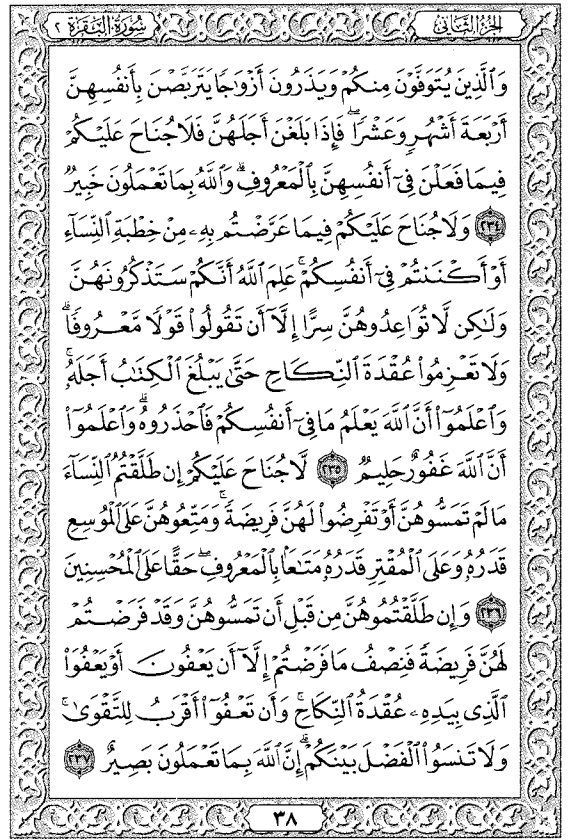 الجزء الثاني
سورة البقرة ٢
وَٱلَّذِينَ يُتَوَفَّوْنَ مِنكُمْ وَيَذَرُونَ أَزْوَٰجًا يَتَرَبَّصْنَ بِأَنفُسِهِنَّ
أَرْبَعَةَ أَشْهُرٍ وَعَشْرًا ۖ فَإِذَا بَلَغْنَ أَجَلَهُنَّ فَلَا جُنَاحَ عَلَيْكُمْ
فِيمَا فَعَلْنَ فِىٓ أَنفُسِهِنَّ بِٱلْمَعْرُوفِ ۗ وَٱللَّهُ بِمَا تَعْمَلُونَ خَبِيرٌ
٢٣٤ وَلَا جُنَاحَ عَلَيْكُمْ فِيمَا عَرَّضْتُم بِهِۦ مِنْ خِطْبَةِ ٱلنِّسَآءِ
أَوْ أَكْنَنتُمْ فِىٓ أَنفُسِكُمْ ۚ عَلِمَ ٱللَّهُ أَنَّكُمْ سَتَذْكُرُونَهُنَّ
وَلَٰكِن لَّا تُوَاعِدُوهُنَّ سِرًّا إِلَّآ أَن تَقُولُوا۟ قَوْلًا مَّعْرُوفًا ۗ
وَلَا تَعْزِمُوا۟ عُقْدَةَ ٱلنِّكَاحِ حَتَّىٰ يَبْلُغَ ٱلْكِتَٰبُ أَجَلَهُۥ ۚ
وَٱعْلَمُوٓا۟ أَنَّ ٱللَّهَ يَعْلَمُ مَا فِىٓ أَنفُسِكُمْ فَٱحْذَرُوهُ ۚ وَٱعْلَمُوٓا۟
أَنَّ ٱللَّهَ غَفُورٌ حَلِيمٌ ٢٣٥ لَّا جُنَاحَ عَلَيْكُمْ إِن طَلَّقْتُمُ ٱلنِّسَآءَ
مَا لَمْ تَمَسُّوهُنَّ أَوْ تَفْرِضُوا۟ لَهُنَّ فَرِيضَةً ۚ وَمَتِّعُوهُنَّ عَلَى ٱلْمُوسِعِ
قَدَرُهُۥ وَعَلَى ٱلْمُقْتِرِ قَدَرُهُۥ مَتَٰعًۢا بِٱلْمَعْرُوفِ ۖ حَقًّا عَلَى ٱلْمُحْسِنِينَ
٢٣٦ وَإِن طَلَّقْتُمُوهُنَّ مِن قَبْلِ أَن تَمَسُّوهُنَّ وَقَدْ فَرَضْتُمْ
لَهُنَّ فَرِيضَةً فَنِصْفُ مَا فَرَضْتُمْ إِلَّآ أَن يَعْفُونَ أَوْ يَعْفُوَا۟
ٱلَّذِى بِيَدِهِۦ عُقْدَةُ ٱلنِّكَاحِ ۚ وَأَن تَعْفُوٓا۟ أَقْرَبُ لِلتَّقْوَىٰ ۚ
وَلَا تَنسَوُا۟ ٱلْفَضْلَ بَيْنَكُمْ ۚ إِنَّ ٱللَّهَ بِمَا تَعْمَلُونَ بَصِيرٌ ٢٣٧
٣٨